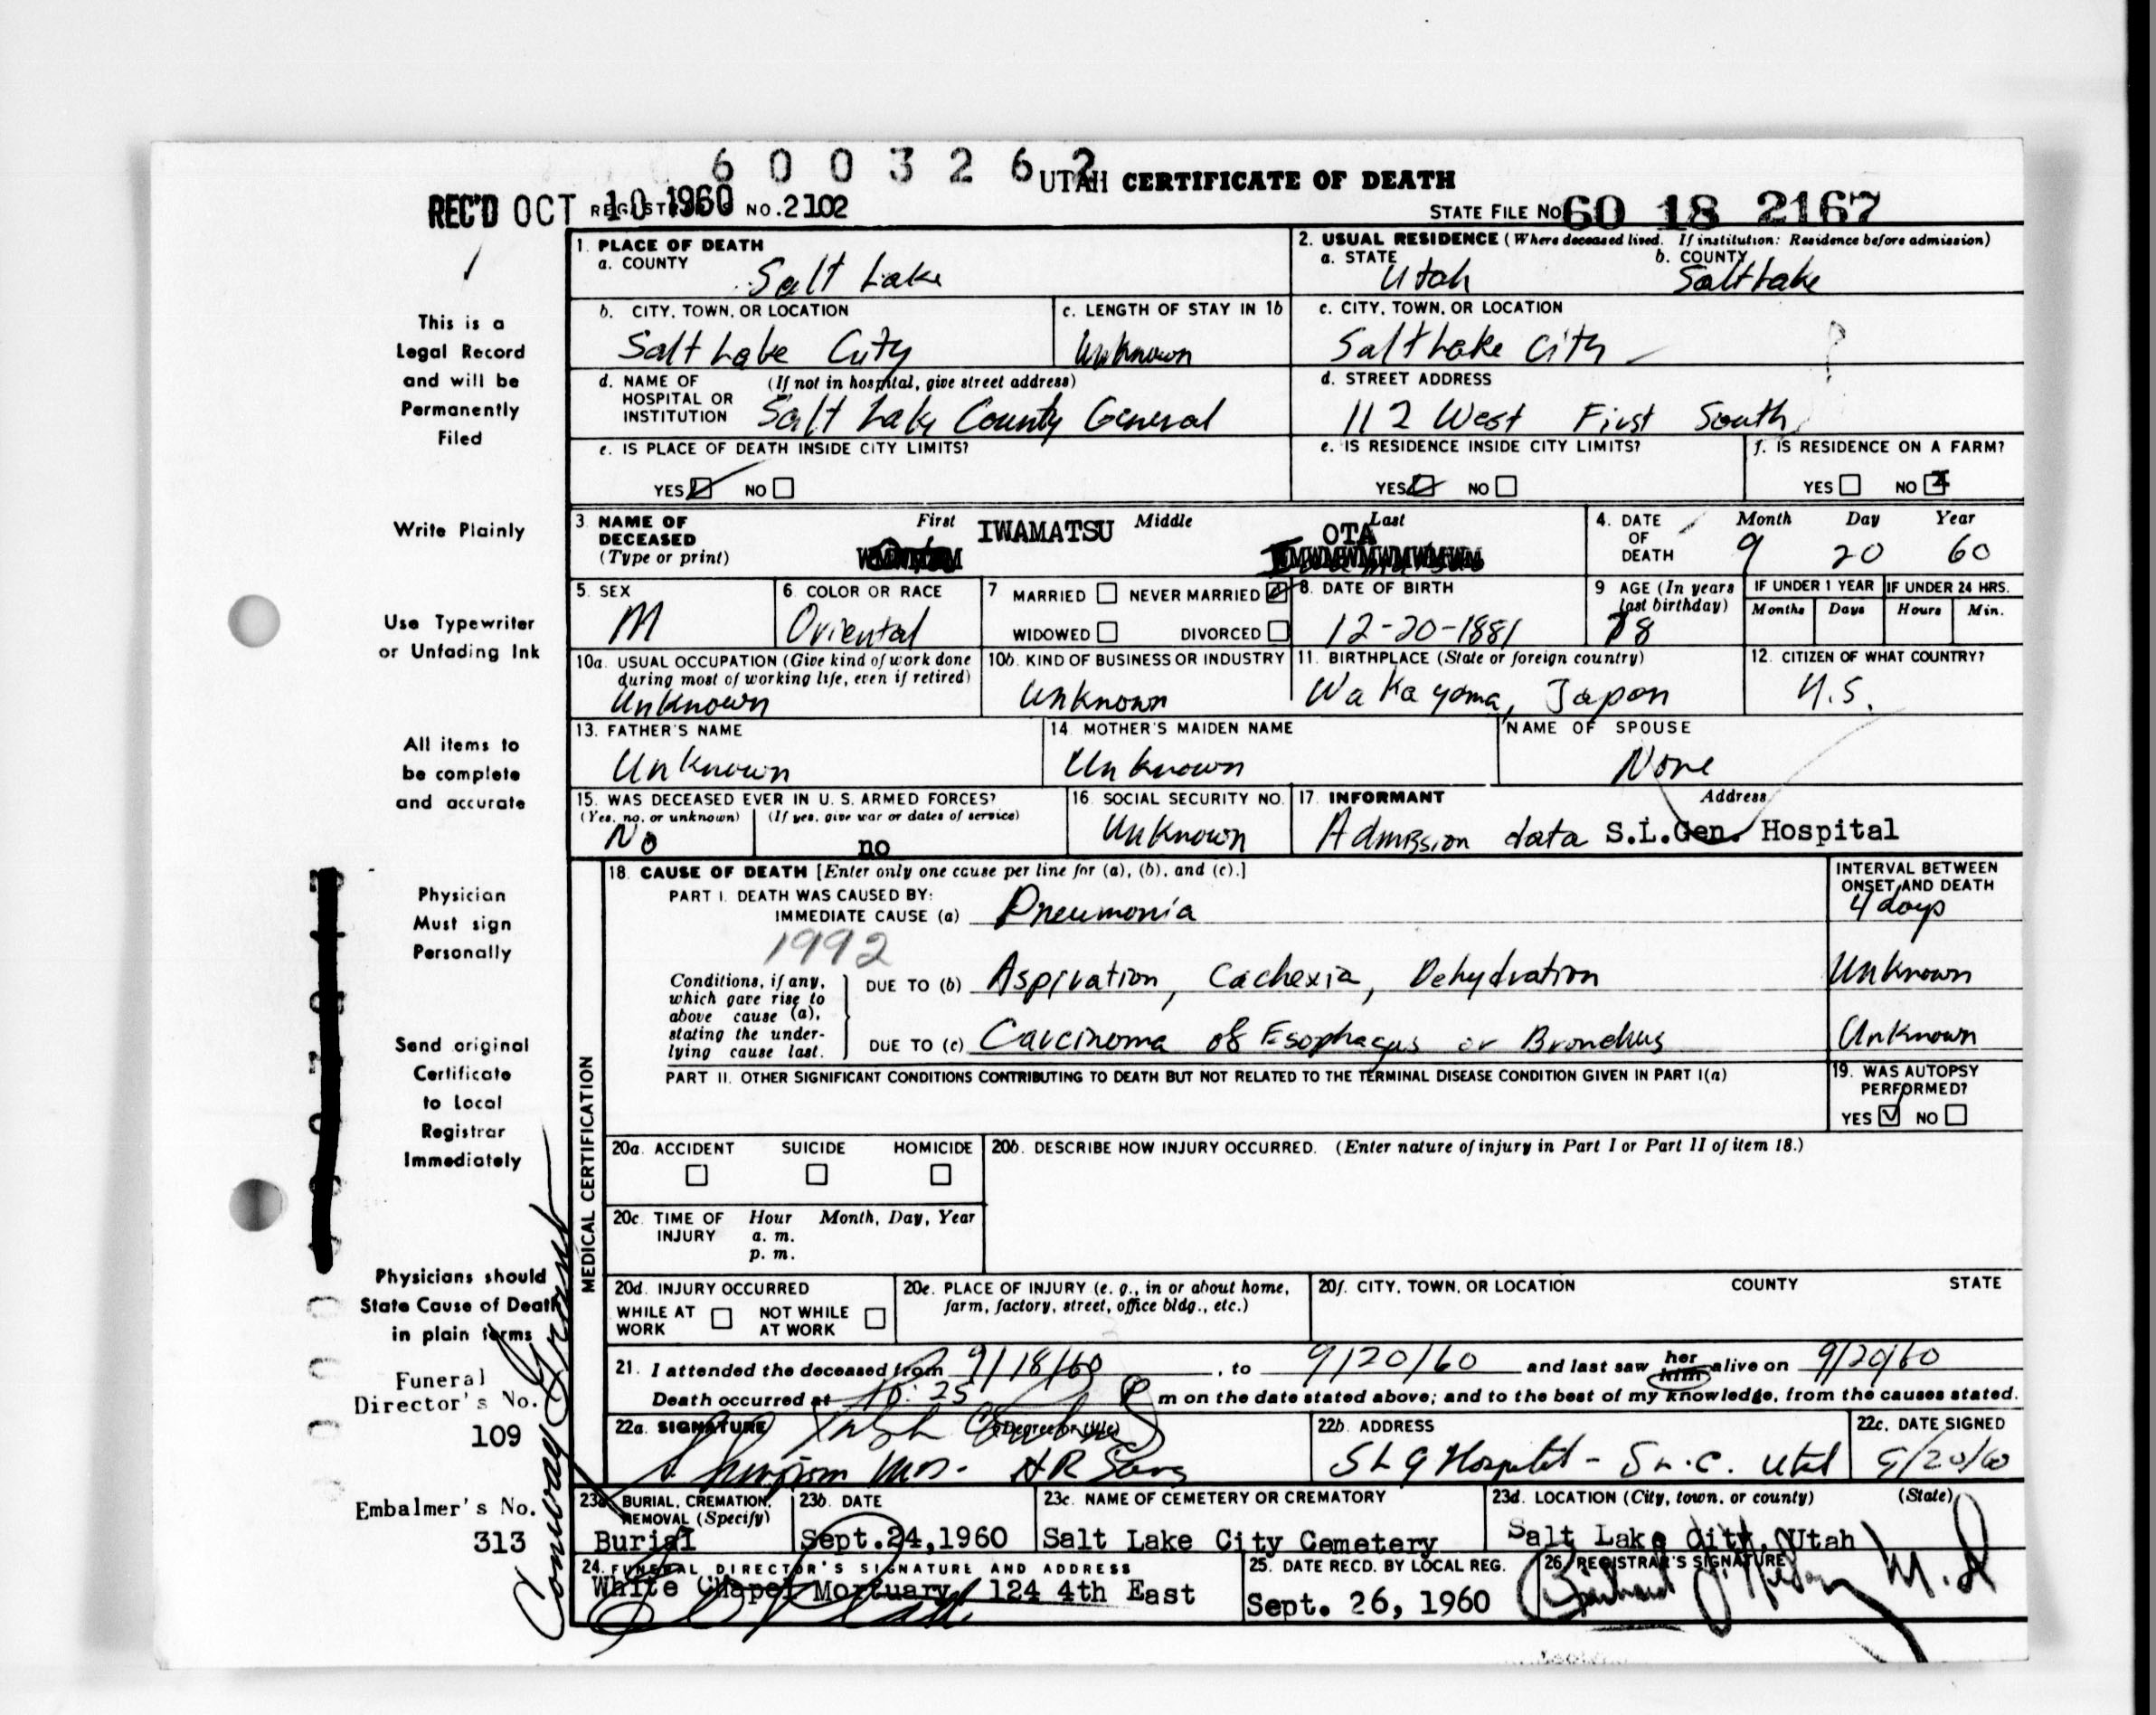 6 0 0 3 2 6 2
UTAH CERTIFICATE OF DEATH
REC'D OCT 10 1960 NO. 2102
STATE FILE NO. 60 18 2167
This is a
Legal Record
and will be
Permanently
Filed
1. PLACE OF DEATH
a. COUNTY Salt Lake
2. USUAL RESIDENCE (Where deceased lived. If institution: Residence before admission)
a. STATE Utah b. COUNTY Salt Lake
b. CITY, TOWN, OR LOCATION Salt Lake City
c. LENGTH OF STAY IN 1b Unknown
c. CITY, TOWN, OR LOCATION Salt Lake City
d. NAME OF HOSPITAL OR INSTITUTION (If not in hospital, give street address) Salt Lake County General
d. STREET ADDRESS 112 West First South
e. IS PLACE OF DEATH INSIDE CITY LIMITS?
YES NO
e. IS RESIDENCE INSIDE CITY LIMITS?
YES NO
f. IS RESIDENCE ON A FARM?
YES NO X
Write Plainly
3. NAME OF DECEASED (Type or print)
First IWAMATSU Middle Last OTA
4. DATE OF DEATH Month Day Year
9 20 60
Use Typewriter
or Unfading Ink
5. SEX M
6. COLOR OR RACE Oriental
7 MARRIED NEVER MARRIED
WIDOWED DIVORCED
8. DATE OF BIRTH 12-20-1881
9 AGE (In years last birthday) 78
IF UNDER 1 YEAR Months Days
IF UNDER 24 HRS. Hours Min.
10a. USUAL OCCUPATION (Give kind of work done during most of working life, even if retired) Unknown
10b. KIND OF BUSINESS OR INDUSTRY Unknown
11. BIRTHPLACE (State or foreign country) Wakayama, Japan
12. CITIZEN OF WHAT COUNTRY? U.S.
All items to
be complete
and accurate
13. FATHER'S NAME Unknown
14. MOTHER'S MAIDEN NAME Unknown
NAME OF SPOUSE None
15. WAS DECEASED EVER IN U. S. ARMED FORCES?
(Yes, no, or unknown) No (If yes, give war or dates of service) no
16. SOCIAL SECURITY NO. Unknown
17. INFORMANT Address
Admission data S.L.Gen. Hospital
Physician
Must sign
Personally
MEDICAL CERTIFICATION
18. CAUSE OF DEATH [Enter only one cause per line for (a), (b), and (c).]
INTERVAL BETWEEN ONSET AND DEATH
PART I. DEATH WAS CAUSED BY:
IMMEDIATE CAUSE (a) Pneumonia 4 days
1992
Conditions, if any, which gave rise to above cause (a), stating the underlying cause last.
DUE TO (b) Aspiration, Cachexia, Dehydration Unknown
DUE TO (c) Carcinoma of Esophagus or Bronchus Unknown
PART II. OTHER SIGNIFICANT CONDITIONS CONTRIBUTING TO DEATH BUT NOT RELATED TO THE TERMINAL DISEASE CONDITION GIVEN IN PART I(a)
19. WAS AUTOPSY PERFORMED?
YES NO
Send original
Certificate
to Local
Registrar
Immediately
20a. ACCIDENT SUICIDE HOMICIDE
20b. DESCRIBE HOW INJURY OCCURRED. (Enter nature of injury in Part I or Part II of item 18.)
20c. TIME OF INJURY Hour Month, Day, Year
a. m.
p. m.
Physicians should
State Cause of Death
in plain terms
20d. INJURY OCCURRED
WHILE AT WORK NOT WHILE AT WORK
20e. PLACE OF INJURY (e. g., in or about home, farm, factory, street, office bldg., etc.)
20f. CITY, TOWN, OR LOCATION COUNTY STATE
21. I attended the deceased from 9/18/60, to 9/20/60 and last saw her him alive on 9/20/60
Death occurred at 10:25 P m on the date stated above; and to the best of my knowledge, from the causes stated.
Funeral
Director's No.
109
22a. SIGNATURE (Degree or title)
22b. ADDRESS SLG Hospital - S.L.C. Utah
22c. DATE SIGNED 9/20/60
Embalmer's No.
313
23a. BURIAL, CREMATION, REMOVAL (Specify) Burial
23b. DATE Sept.24,1960
23c. NAME OF CEMETERY OR CREMATORY Salt Lake City Cemetery
23d. LOCATION (City, town, or county) (State) Salt Lake City, Utah
24. FUNERAL DIRECTOR'S SIGNATURE AND ADDRESS
White Chapel Mortuary, 124 4th East
25. DATE RECD. BY LOCAL REG. Sept. 26, 1960
26. REGISTRAR'S SIGNATURE